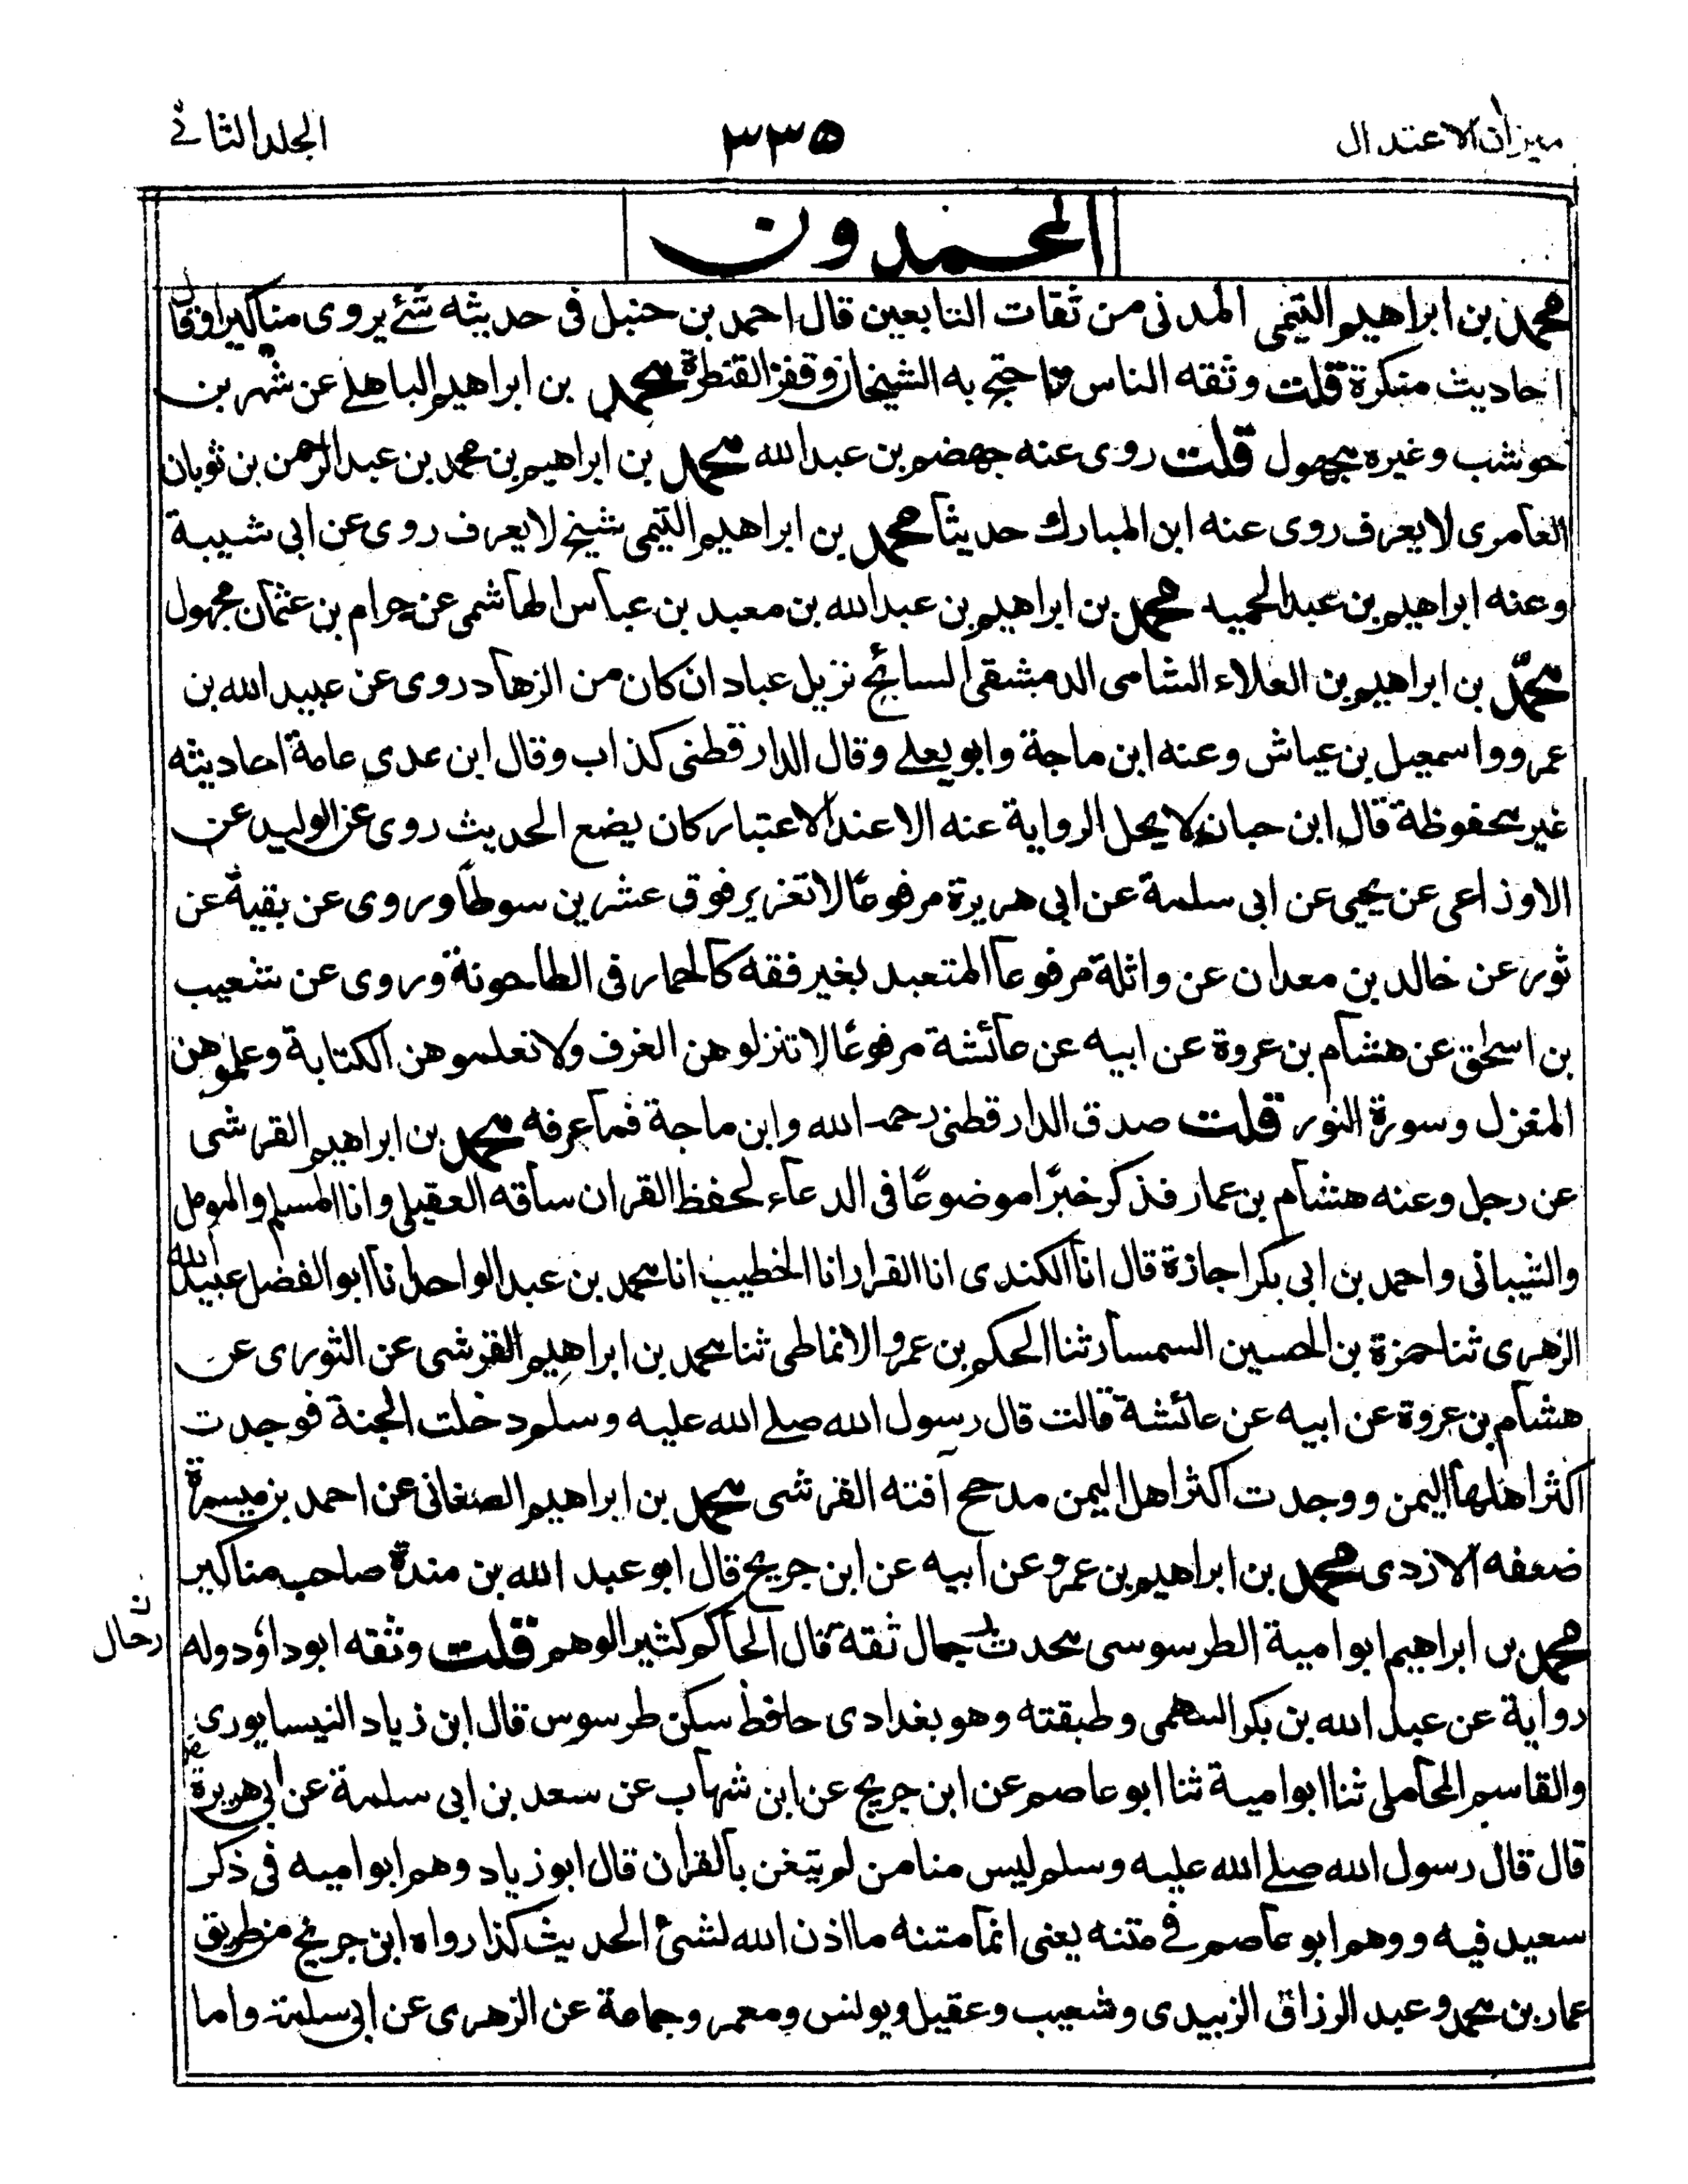 ميزان الاعتدال ٣٣٥ الجلد الثانى
المحمدون
محمد بن ابراهيم التيمى المدنى من ثقات التابعين قال احمد بن حنبل فى حديثه شئ يروى مناكير او قال
احاديث منكرة قلت وثقه الناس واحتج به الشيخان وقفز القنطرة محمد بن ابراهيم الباهلى عن شهر بن
حوشب وغيره مجهول قلت روى عنه جهضم بن عبدالله محمد بن ابراهيم بن محمد بن عبدالرحمن بن ثوبان
العامرى لايعرف روى عنه ابن المبارك حديثا محمد بن ابراهيم التيمى شيخ لايعرف روى عن ابى شيبة
وعنه ابراهيم بن عبدالحميد محمد بن ابراهيم بن عبدالله بن معبد بن عباس الهاشمى عن حرام بن عثمان مجهول
محمد بن ابراهيم بن العلاء الشامى الدمشقى السائح نزيل عبادان كان من الزهاد روى عن عبيد الله بن
عمرو واسمعيل بن عياش وعنه ابن ماجة وابو يعلى وقال الدارقطنى كذاب وقال ابن عدى عامة احاديثه
غير محفوظة قال ابن حبان لايحل الرواية عنه الا عند الاعتبار كان يضع الحديث روى عن الوليد عن
الاوزاعى عن يحيى عن ابى سلمة عن ابى هريرة مرفوعًا لا تعزير فوق عشرين سوطًا وروى عن بقية عن
ثور عن خالد بن معدان عن واثلة مرفوعا المتعبد بغير فقه كالحمار فى الطاحونة وروى عن شعيب
بن اسحق عن هشام بن عروة عن ابيه عن عائشة مرفوعًا لا تنزلوهن الغرف ولا تعلموهن الكتابة وعلموهن
المغزل وسورة النور قلت صدق الدارقطنى رحمه الله وابن ماجة فما عرفه محمد بن ابراهيم القرشى
عن رجل وعنه هشام بن عمار فذكر خبرًا موضوعًا فى الدعاء لحفظ القران ساقه العقيلى وانا المسلم والمومل
والشيبانى واحمد بن ابى بكر اجازة قال انا الكندى انا القزاز انا الخطيب انا محمد بن عبدالواحد انا ابو الفضل عبيدالله
الزهرى ثنا حمزة بن الحسين السمسار ثنا الحكم بن عمرو الانماطى ثنا محمد بن ابراهيم القرشى عن الثورى عن
هشام بن عروة عن ابيه عن عائشة قالت قال رسول الله صلى الله عليه وسلم دخلت الجنة فوجدت
اكثر اهلها اليمن ووجدت اكثر اهل اليمن مدحج آفته القرشى محمد بن ابراهيم الصغانى عن احمد بن ميسرة
ضعفه الازدى محمد بن ابراهيم بن عمرو عن ابيه عن ابن جريج قال ابو عبد الله بن مندة صاحب مناكير
محمد بن ابراهيم ابو امية الطرسوسى محدث جمال ثقة قال الحاكم كثير الوهم قلت وثقه ابو داؤد وله
رحال
رواية عن عبد الله بن بكر السهمى وطبقته وهو بغدادى حافظ سكن طرسوس قال ابن زياد النيسابورى
والقاسم المحاملى ثنا ابو امية ثنا ابو عاصم عن ابن جريج عن ابن شهاب عن سعد بن ابى سلمة عن ابى هريرة
قال قال رسول الله صلى الله عليه وسلم ليس منا من لم يتغن بالقران قال ابو زياد وهم ابو اميه فى ذكر
سعيد فيه ووهم ابو عاصم فى متنه يعنى انما متنه ما اذن الله لشئ الحديث كذا رواه ابن جريج من طريق
عمار بن محمد وعبد الرزاق الزبيدى وشعيب وعقيل ويونس ومعمر وجماعة عن الزهرى عن ابى سلمة واما